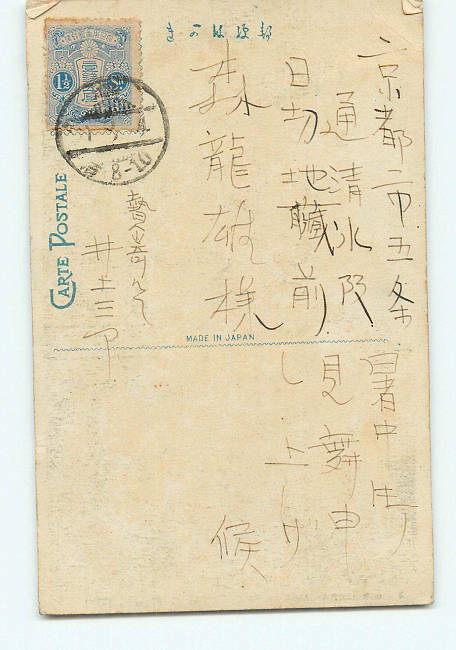 きかは便郵
京都市五条
通清水阪
日切地蔵前
森龍雄様
井上三
暑中御
見舞申
し上げ
候
CARTE POSTALE
MADE IN JAPAN
1½ Sn.
8-10